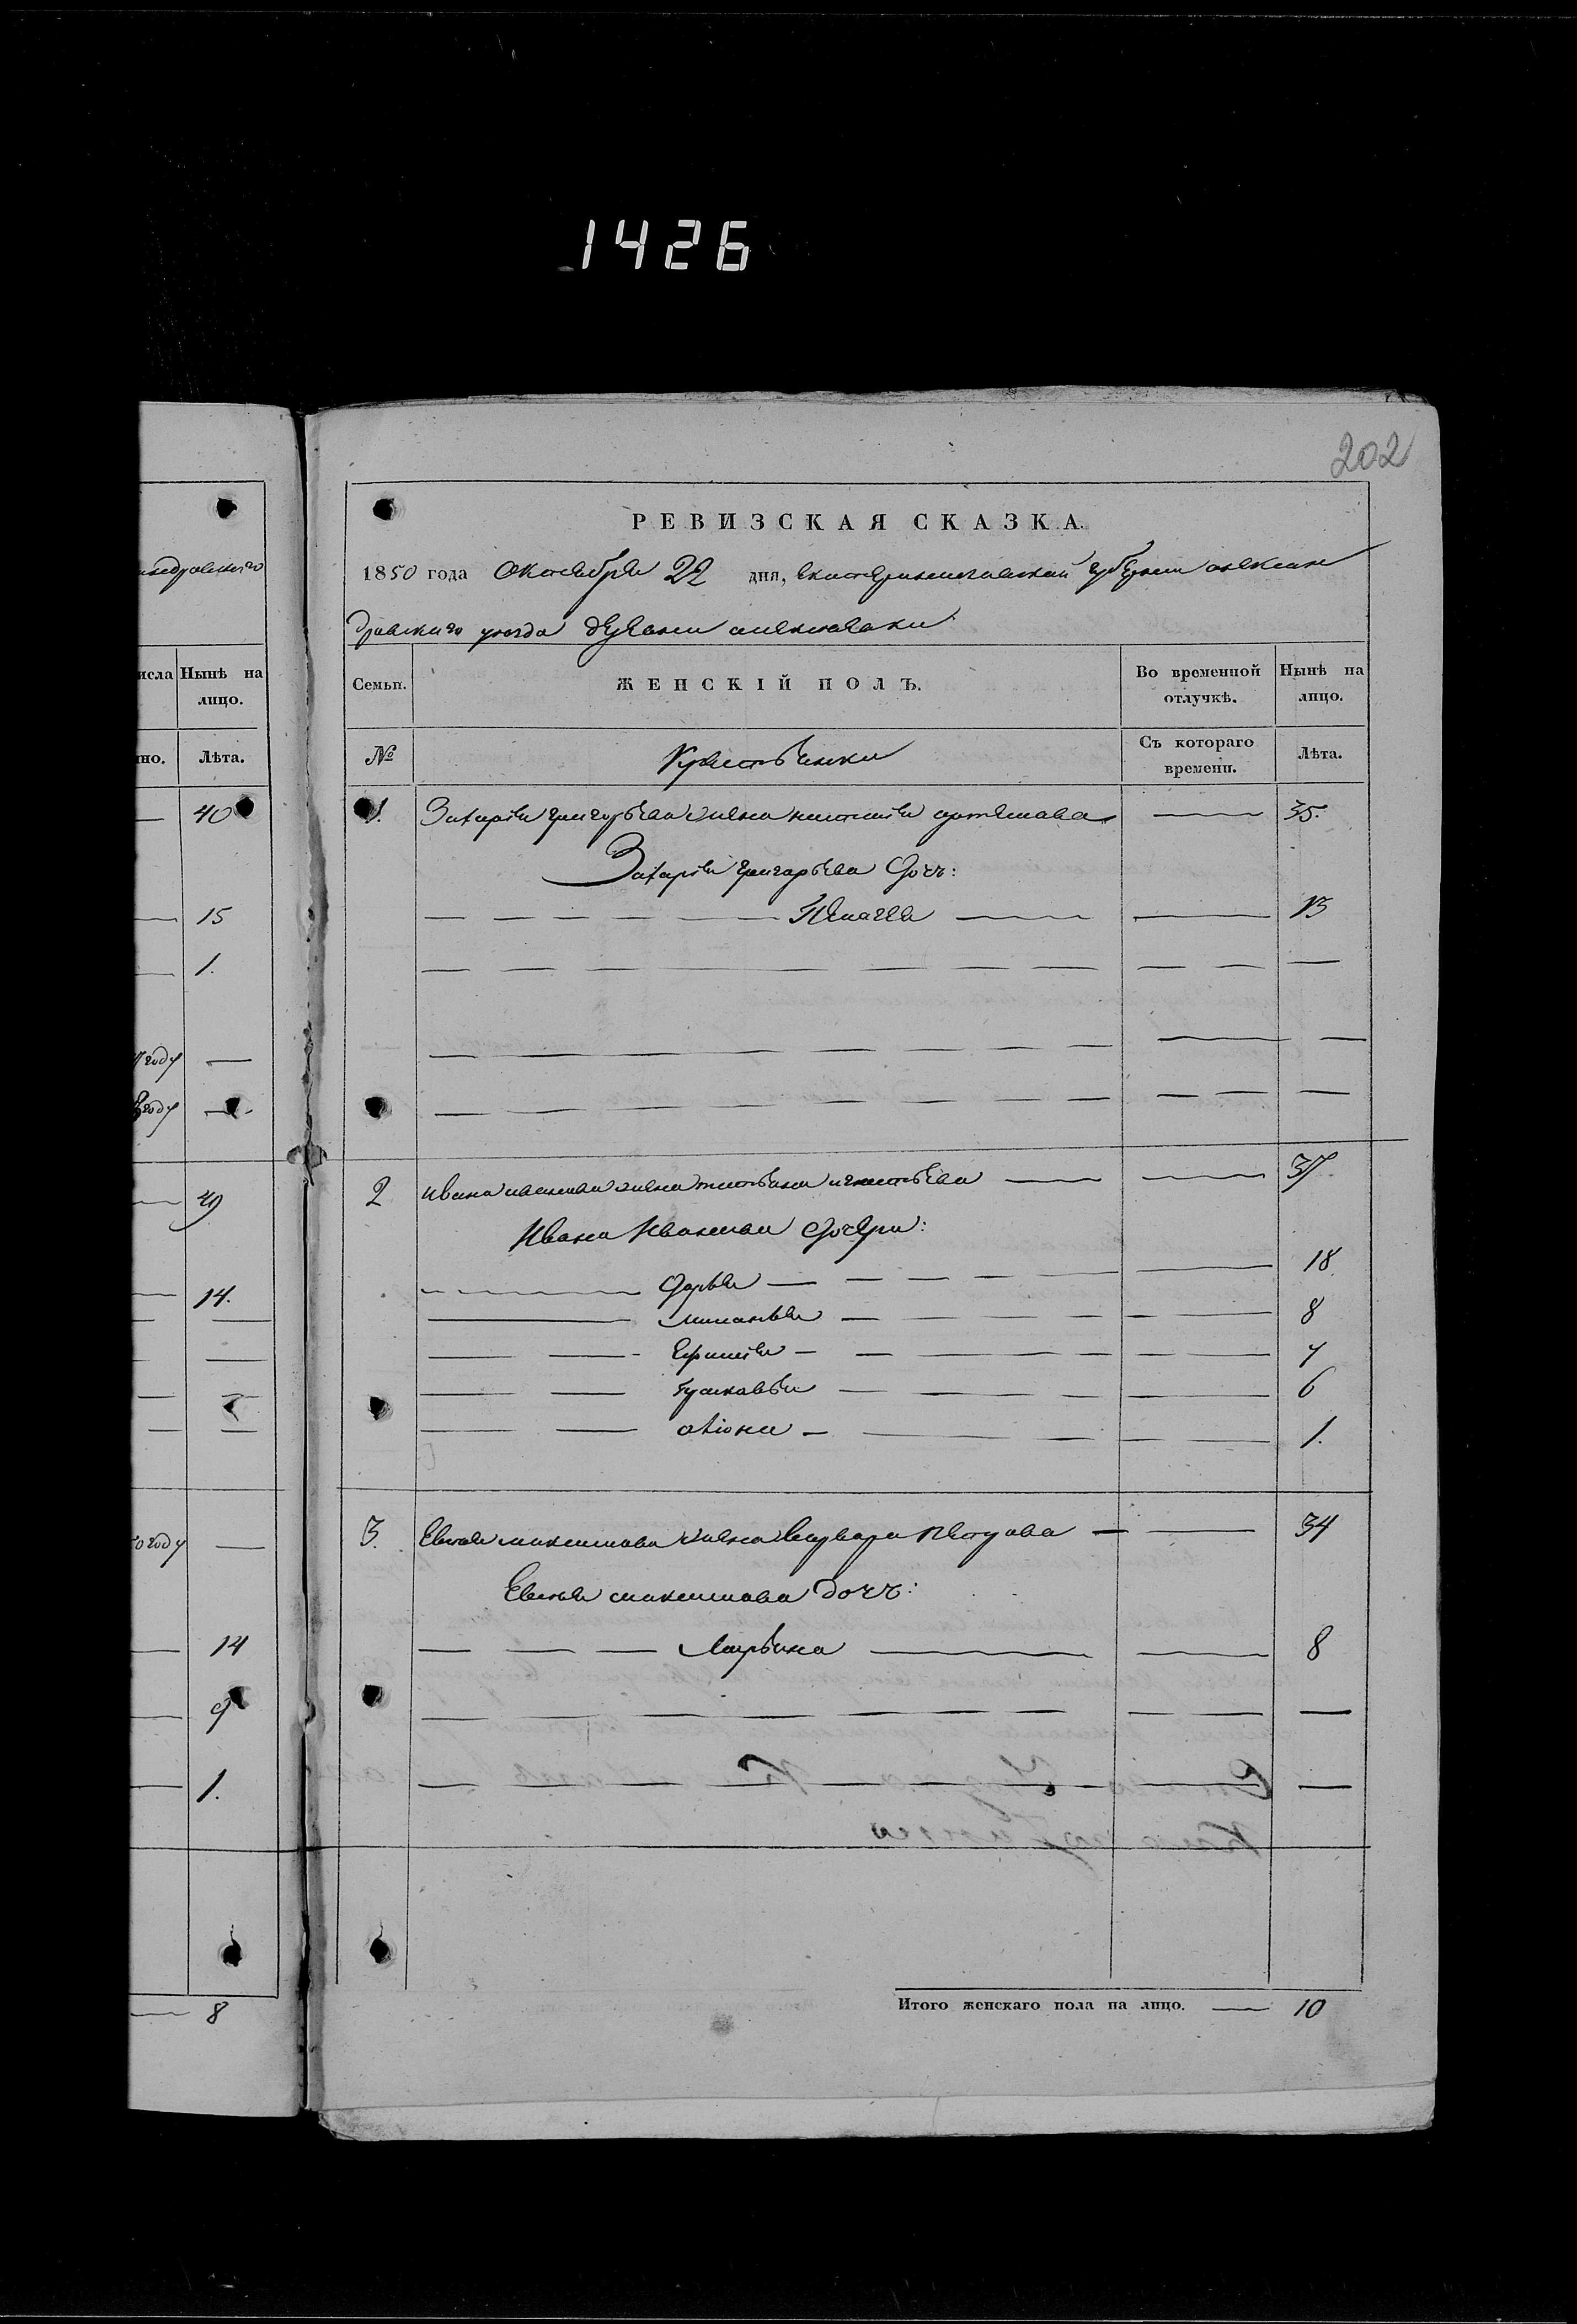 1426
202
РЕВИЗСКАЯ СКАЗКА.
1850 года Октября 22 дня, Екатеринославской губернии алексан
дравскаго уезда
Семьи.
ЖЕНСКІЙ ПОЛЪ.
Во временной отлучкѣ.
Нынѣ на лицо.
№
Крестьянки
Съ котораго времени.
Лѣта.
1. Захарія григорьева жена артемова 35.
Захарія григарьева Дочь:
13
2 Ивана иванова жена татьяна игнатьева 37
Ивана Иванова Дочери:
Дарья 18
маланья 8
7
6
1.
3. Евсея максимова жена варвара 34
Евсея максимова дочь:
8
Итого женскаго пола на лицо. 10
андравскаго
исла
Нынѣ на лицо.
но.
Лѣта.
40
15
1.
году
году
49
14.
году
14
9
1.
8